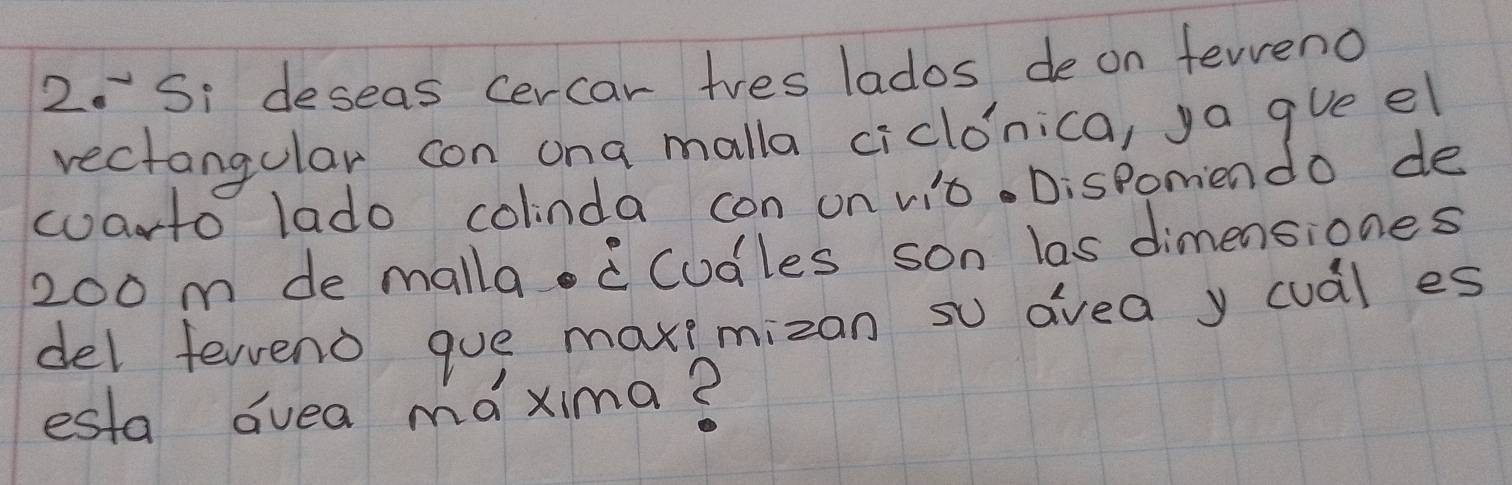 2.- Si deseas cercar tres lados de un terreno
rectangular con una malla ciclónica, ya que el
cuarto lado colinda con un río. Dispomiendo de
200 m de malla. ¿Cuáles son las dimensiones
del terreno que maximizan su área y cuál es
esta área máxima?